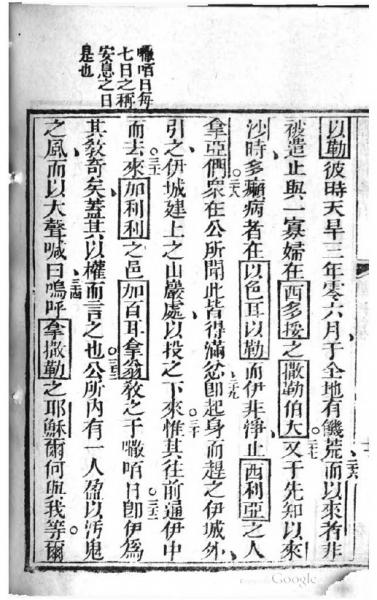 嚽咟日每
七日之稱
安息之日
是也
以勒彼時天旱三年零六月于全地有饑荒而以來者非
被遣止與一寡婦在西多援之撒勒伯大又于先知以來
沙時多癩病者在以色耳以勒而伊非淨止西利亞之人
拿亞們衆在公所聞此皆得滿忿卽起身而趕之伊城外
引之伊城建上之山巖處以投之下來惟其往前通伊中
而去來加利利之邑加百耳拿翁敎之于嚽咟日卽伊爲
其敎奇矣蓋其以權而言之也公所內有一人盈以污鬼
之風而以大聲喊曰嗚呼拿撒勒之耶穌爾何與我等爾
二六
二七
二八
二九
三十
三一
三二
三三
三四
Google